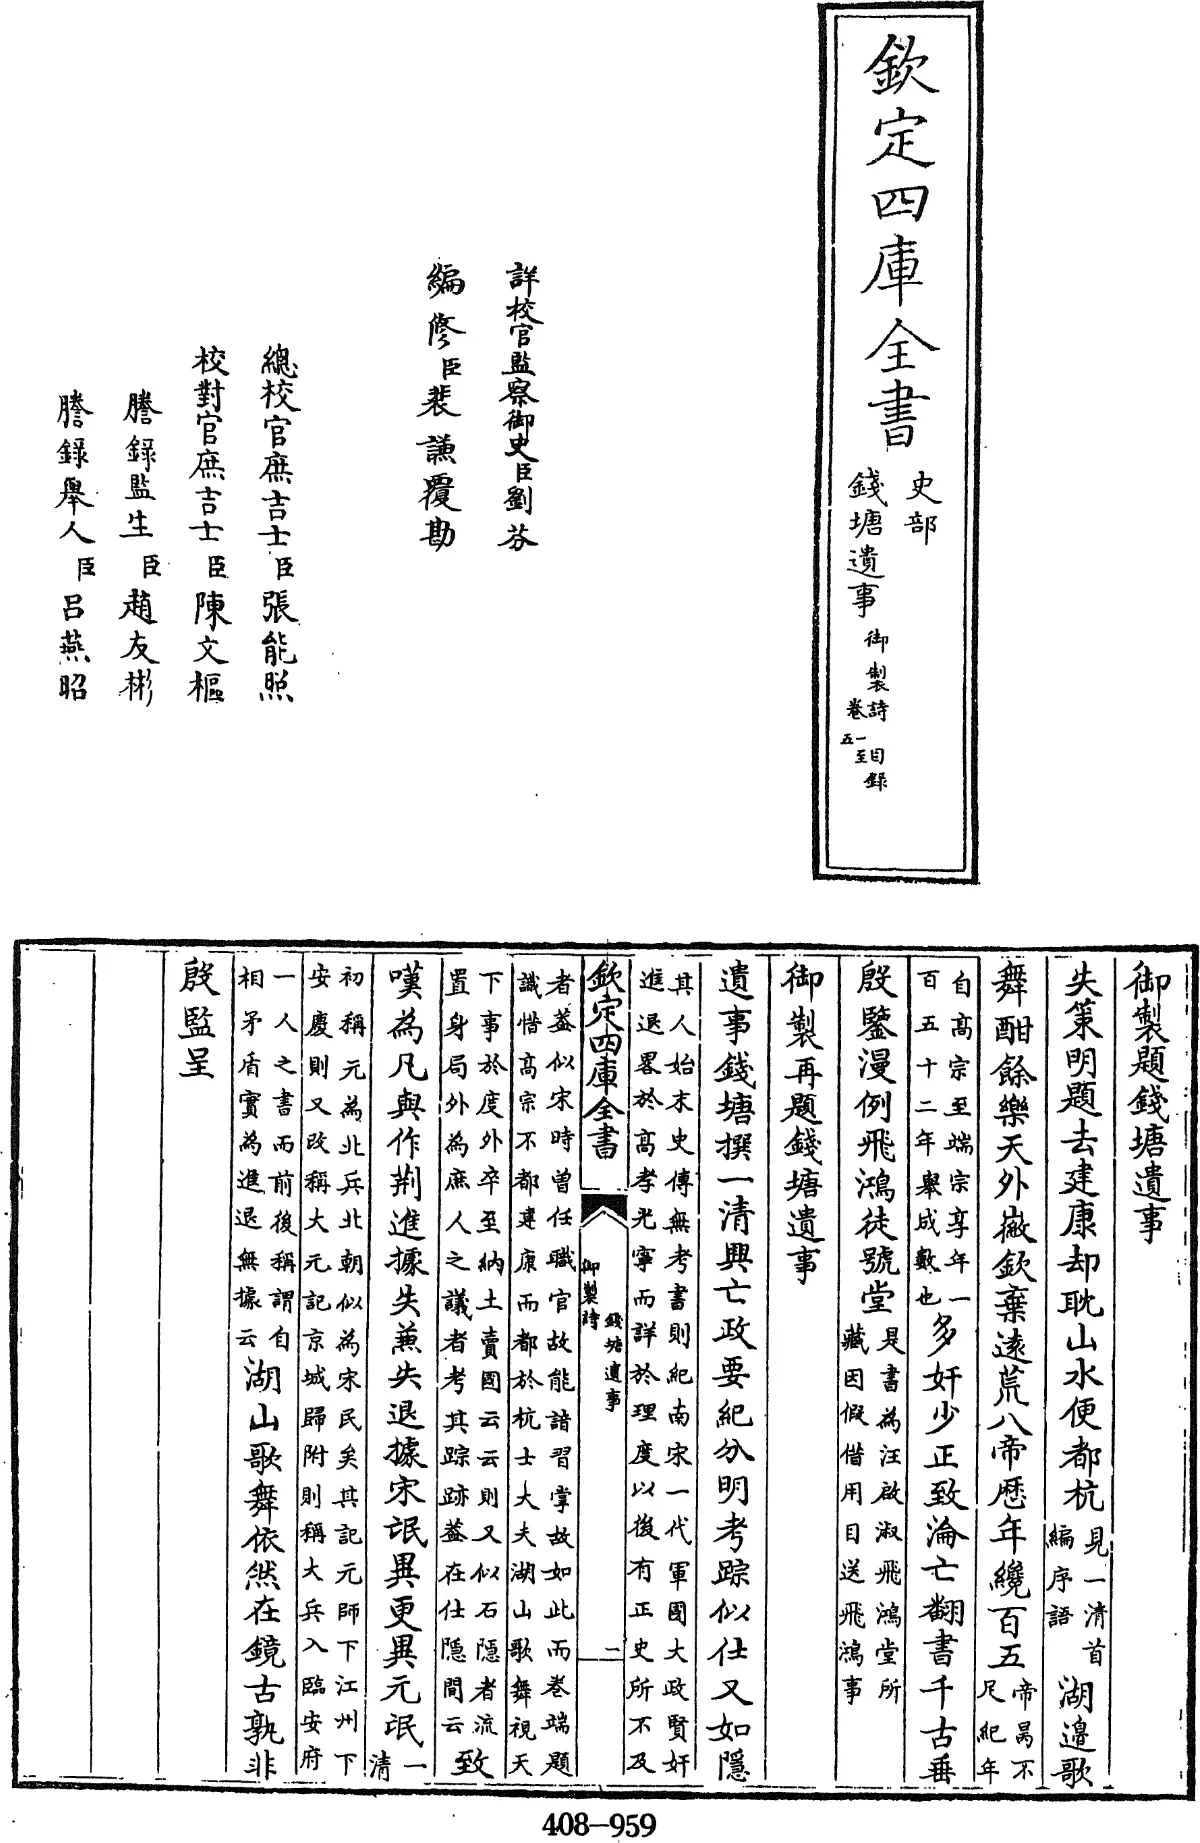 欽定四庫全書
史部
錢塘遺事 御製詩 目録
卷一至五
詳校官監察御史臣劉芬
編修臣裴謙覆勘
總校官庶吉士臣張能照
校對官庶吉士臣陳文樞
謄錄監生臣趙友彬
謄錄舉人臣吕燕昭
御製題錢塘遺事
失策明題去建康却耽山水便都杭見一清首編序語湖邉歌
舞酣餘樂天外徽欽棄遠荒八帝歴年纔百五帝昺不紀年
自髙宗至端宗享年一百五十二年舉成數也多奸少正致淪亡翻書千古垂
殷鑒漫例飛鴻徒號堂是書為汪啟淑飛鴻堂所藏因假借用目送飛鴻事
御製再題錢塘遺事
遺事錢塘撰一清興亡政要紀分明考踪似仕又如隱
其人始末史傳無考書則紀南宋一代軍國大政賢奸
進退畧於髙孝光寧而詳於理度以後有正史所不及
欽定四庫全書
錢塘遺事
御製詩
二
者葢似宋時曾任職官故能諳習掌故如此而卷端題
識惜髙宗不都建康而都於杭士大夫湖山歌舞視天
下事於度外卒至納土賣國云云則又似石隱者流
置身局外為庶人之議者考其踪跡葢在仕隱間云致
嘆為凡與作荆進據失兼失退據宋氓異更異元氓一清
初稱元為北兵北朝似為宋民矣其記元師下江州下
安慶則又改稱大元記京城歸附則稱大兵入臨安府
一人之書而前後稱謂自
相矛盾實為進退無據云湖山歌舞依然在鏡古孰非
殷監呈
408-959